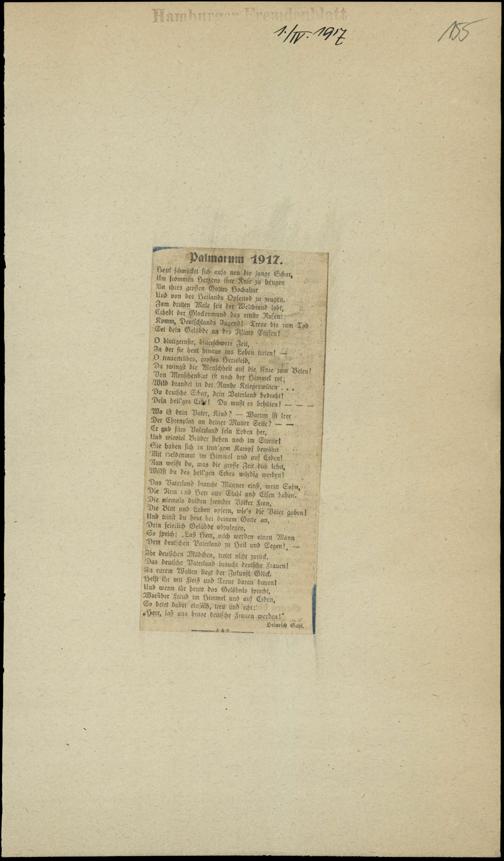 Hamburger Fremdenblatt
1./IV. 1917
155
Palmarum 1917.
Heut schmücket sich aufs neu die junge Schar,
Um frommen Herzens ihre Knie zu beugen
An ihres großen Gottes Hochaltar
Und von des Heilands Opfertod zu zeugen.
Zum dritten Male seit der Weltbrand loht,
Erhebt der Glockenmund das ernste Rufen:
Komm, Deutschlands Jugend! Treue bis zum Tod
Sei dein Gelübde an des Altars Stufen!
O blutigernste, eisenschwere Zeit,
In der sie heut hinaus ins Leben treten! —
O trauertrübes, großes Herzeleid,
Da zwingst die Menschheit auf die Knie zum Beten!
Von Menschenblut ist noch der Himmel rot;
Wild brandet in der Runde Kriegswüten . . .
Du deutsche Schar, dein Vaterland bedroht!
Dein heil'ges Erbe! Du mußt es behüten! — — —
Wo ist dein Vater, Kind? — Warum ist leer
Der Ehrenplatz an deiner Mutter Seite? — —
Er gab fürs Vaterland sein Leben her,
Und wieviel Brüder stehen noch im Streite!
Sie haben sich in blut'gem Kampf bewährt
Mit Heldenmut im Himmel und auf Erden!
Nun weißt du, was die große Zeit dich lehrt,
Willst du des heil'gen Erbes würdig werden!
Das Vaterland braucht Männer einst, mein Sohn,
Die Arm und Herz aus Stahl und Eisen haben.
Die niemals dulden fremder Völker Fron,
Die Blut und Leben opfern, wie's die Väter gaben!
Und trittst du heut vor deinem Gotte an,
Dein feierlich Gelübde abzulegen,
So sprich: „Laß Herr, mich werden einen Mann
Dem deutschen Vaterland zu Heil und Segen!" —
Ihr deutschen Mädchen, tretet nicht zurück,
Das deutsche Vaterland braucht deutsche Frauen!
In eurem Walten liegt der Zukunft Glück.
Helft ihr mit Fleiß und Treue daran bauen!
Und wenn ihr heute das Gelöbnis sprecht,
Worüber Freud im Himmel und auf Erden,
So betet dabei einfach, treu und echt:
„Herr, laß uns brave deutsche Frauen werden!"
Heinrich